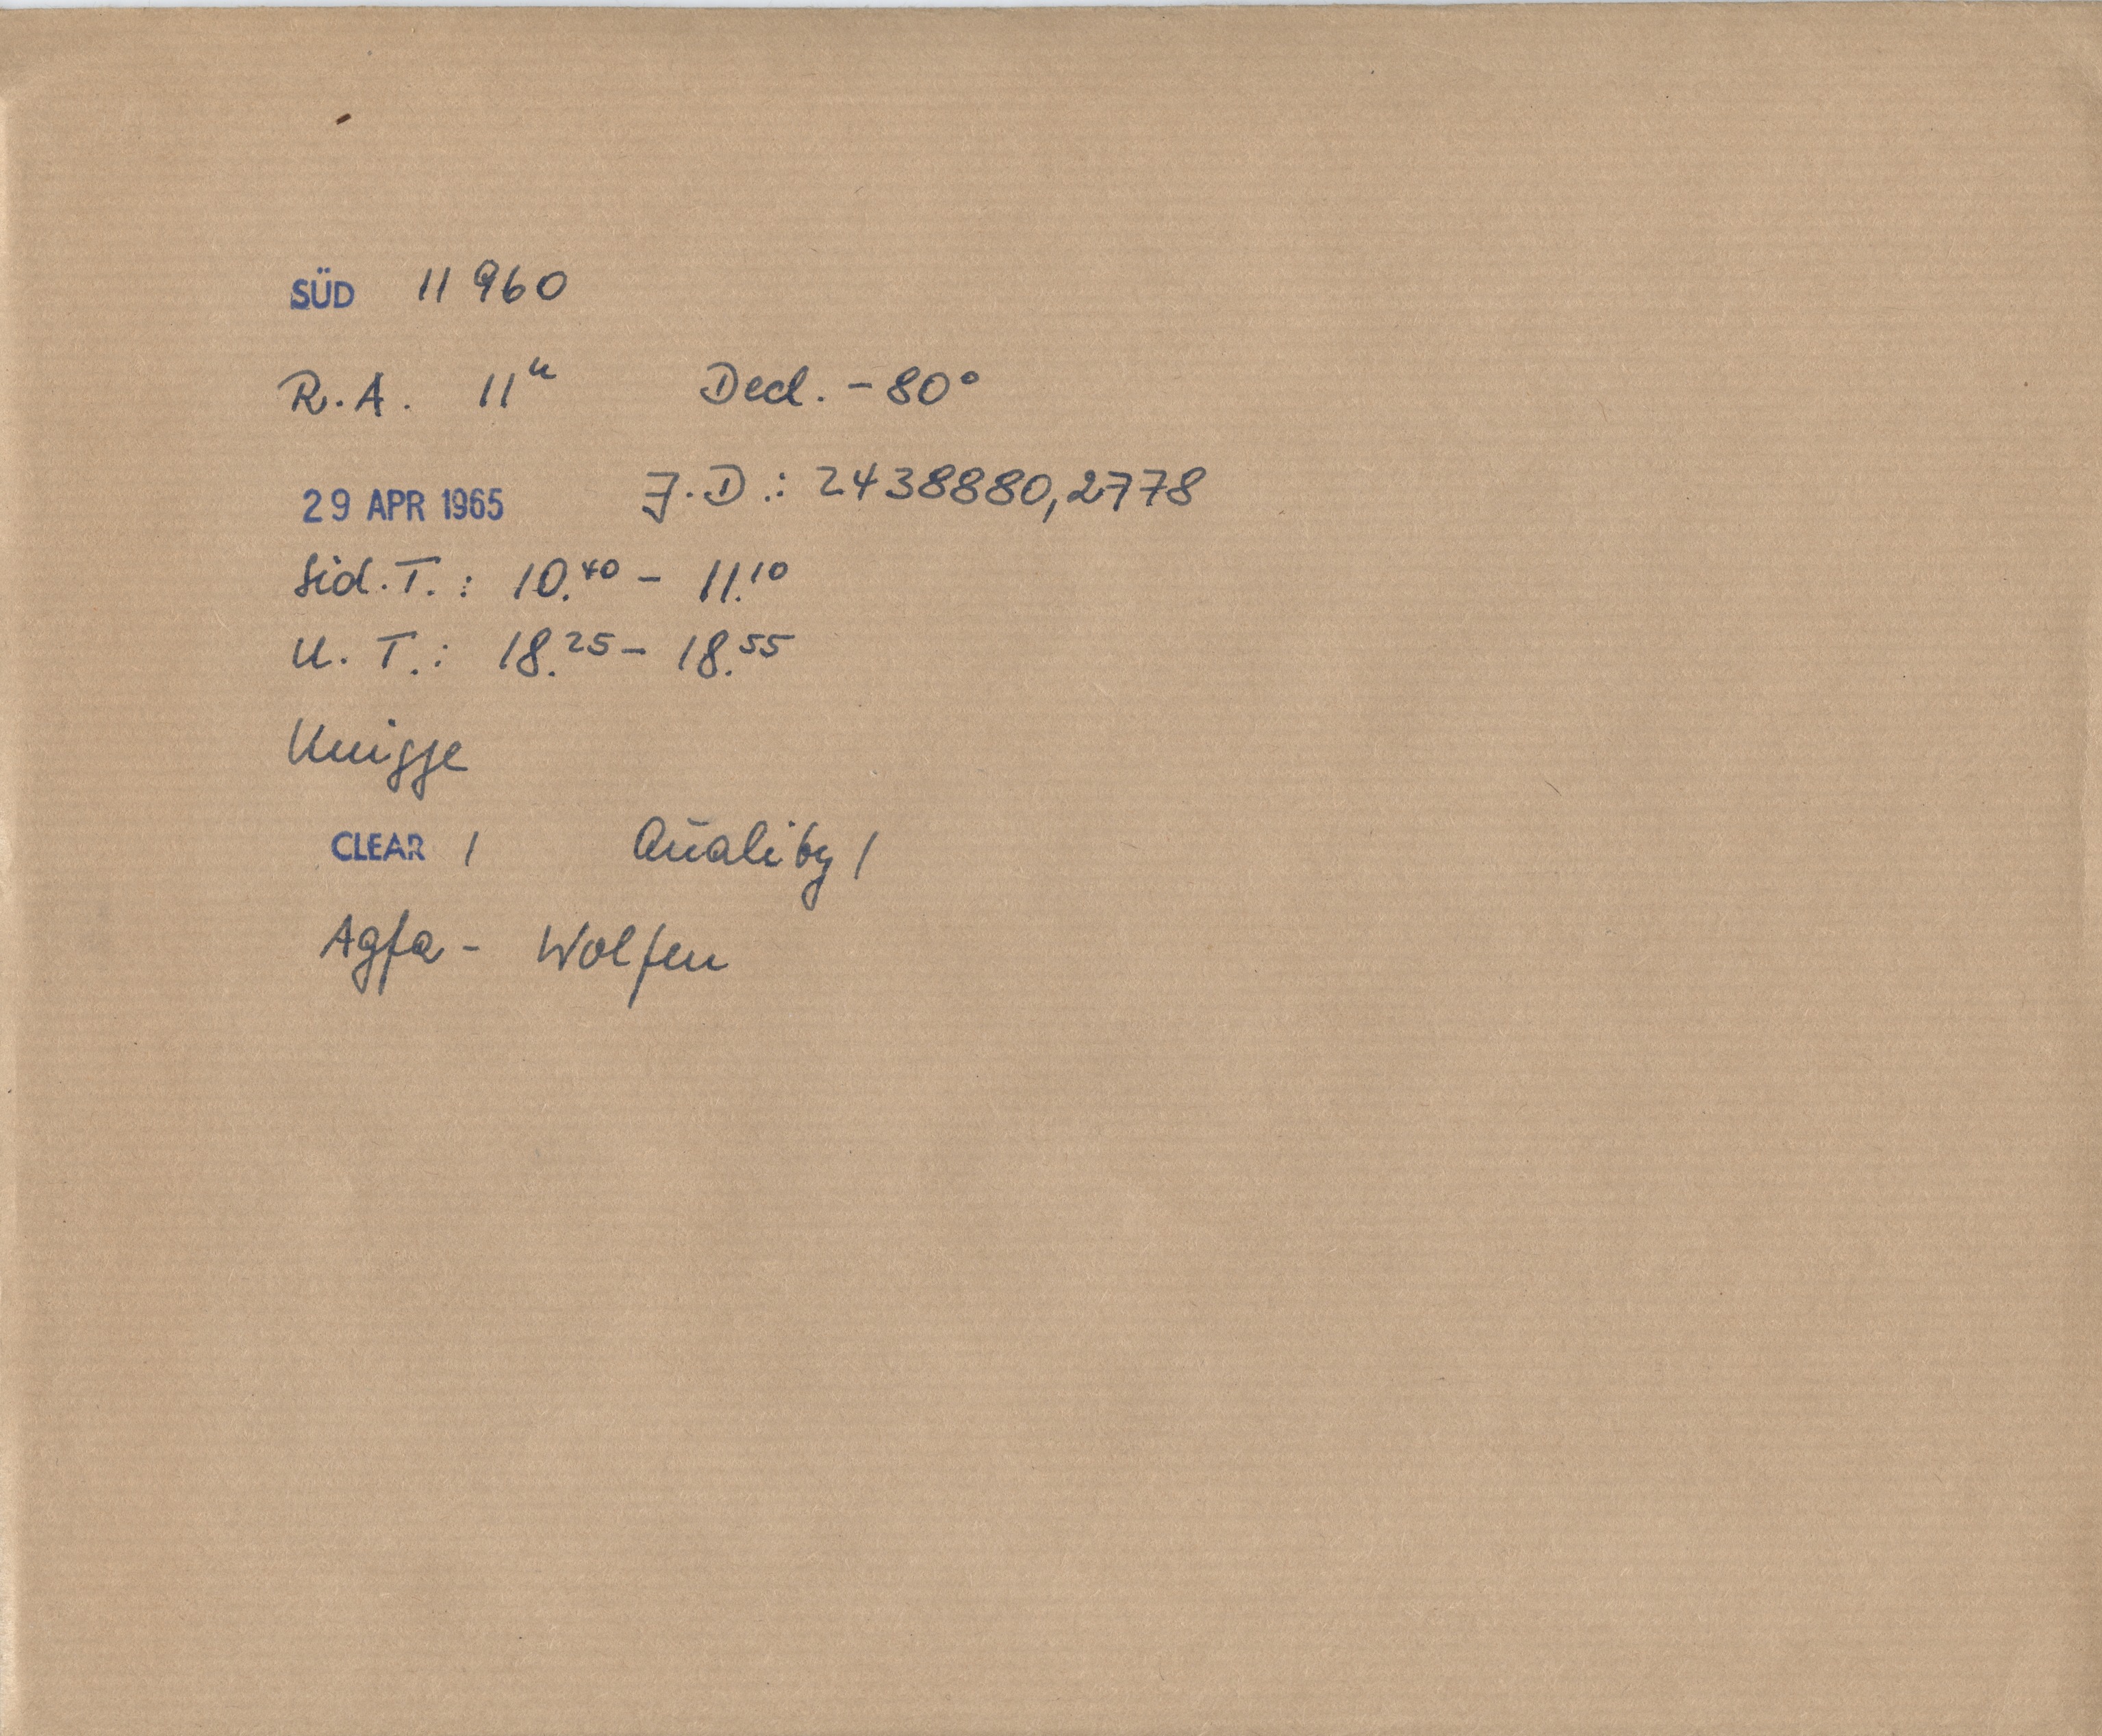 SÜD 11960
R.A. 11ʰ Decl. -80°
29 APR 1965 J.D.: 2438880,2778
Sid.T.: 10.⁴⁰ - 11.¹⁰
U.T.: 18.²⁵ - 18.⁵⁵
Knigge
CLEAR 1 Quality 1
Agfa - Wolfen